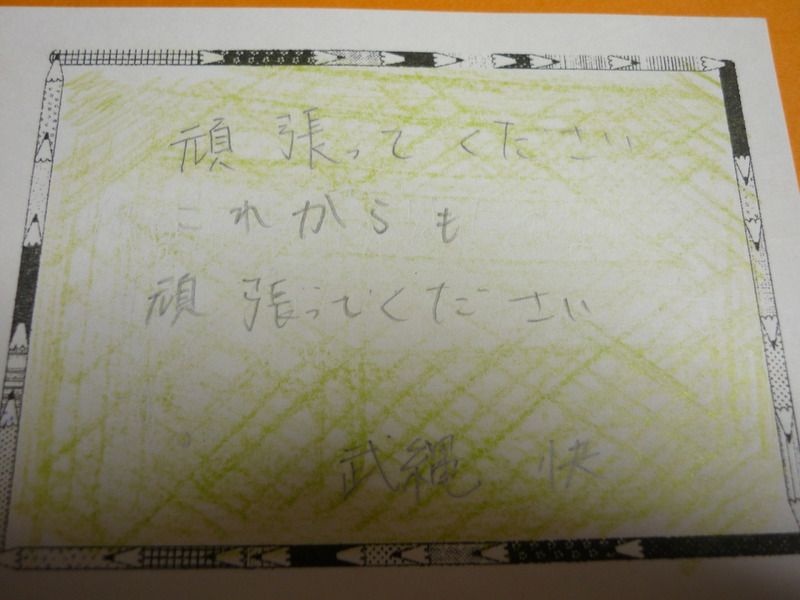 頑張ってください
これからも
頑張ってください
武縄 快